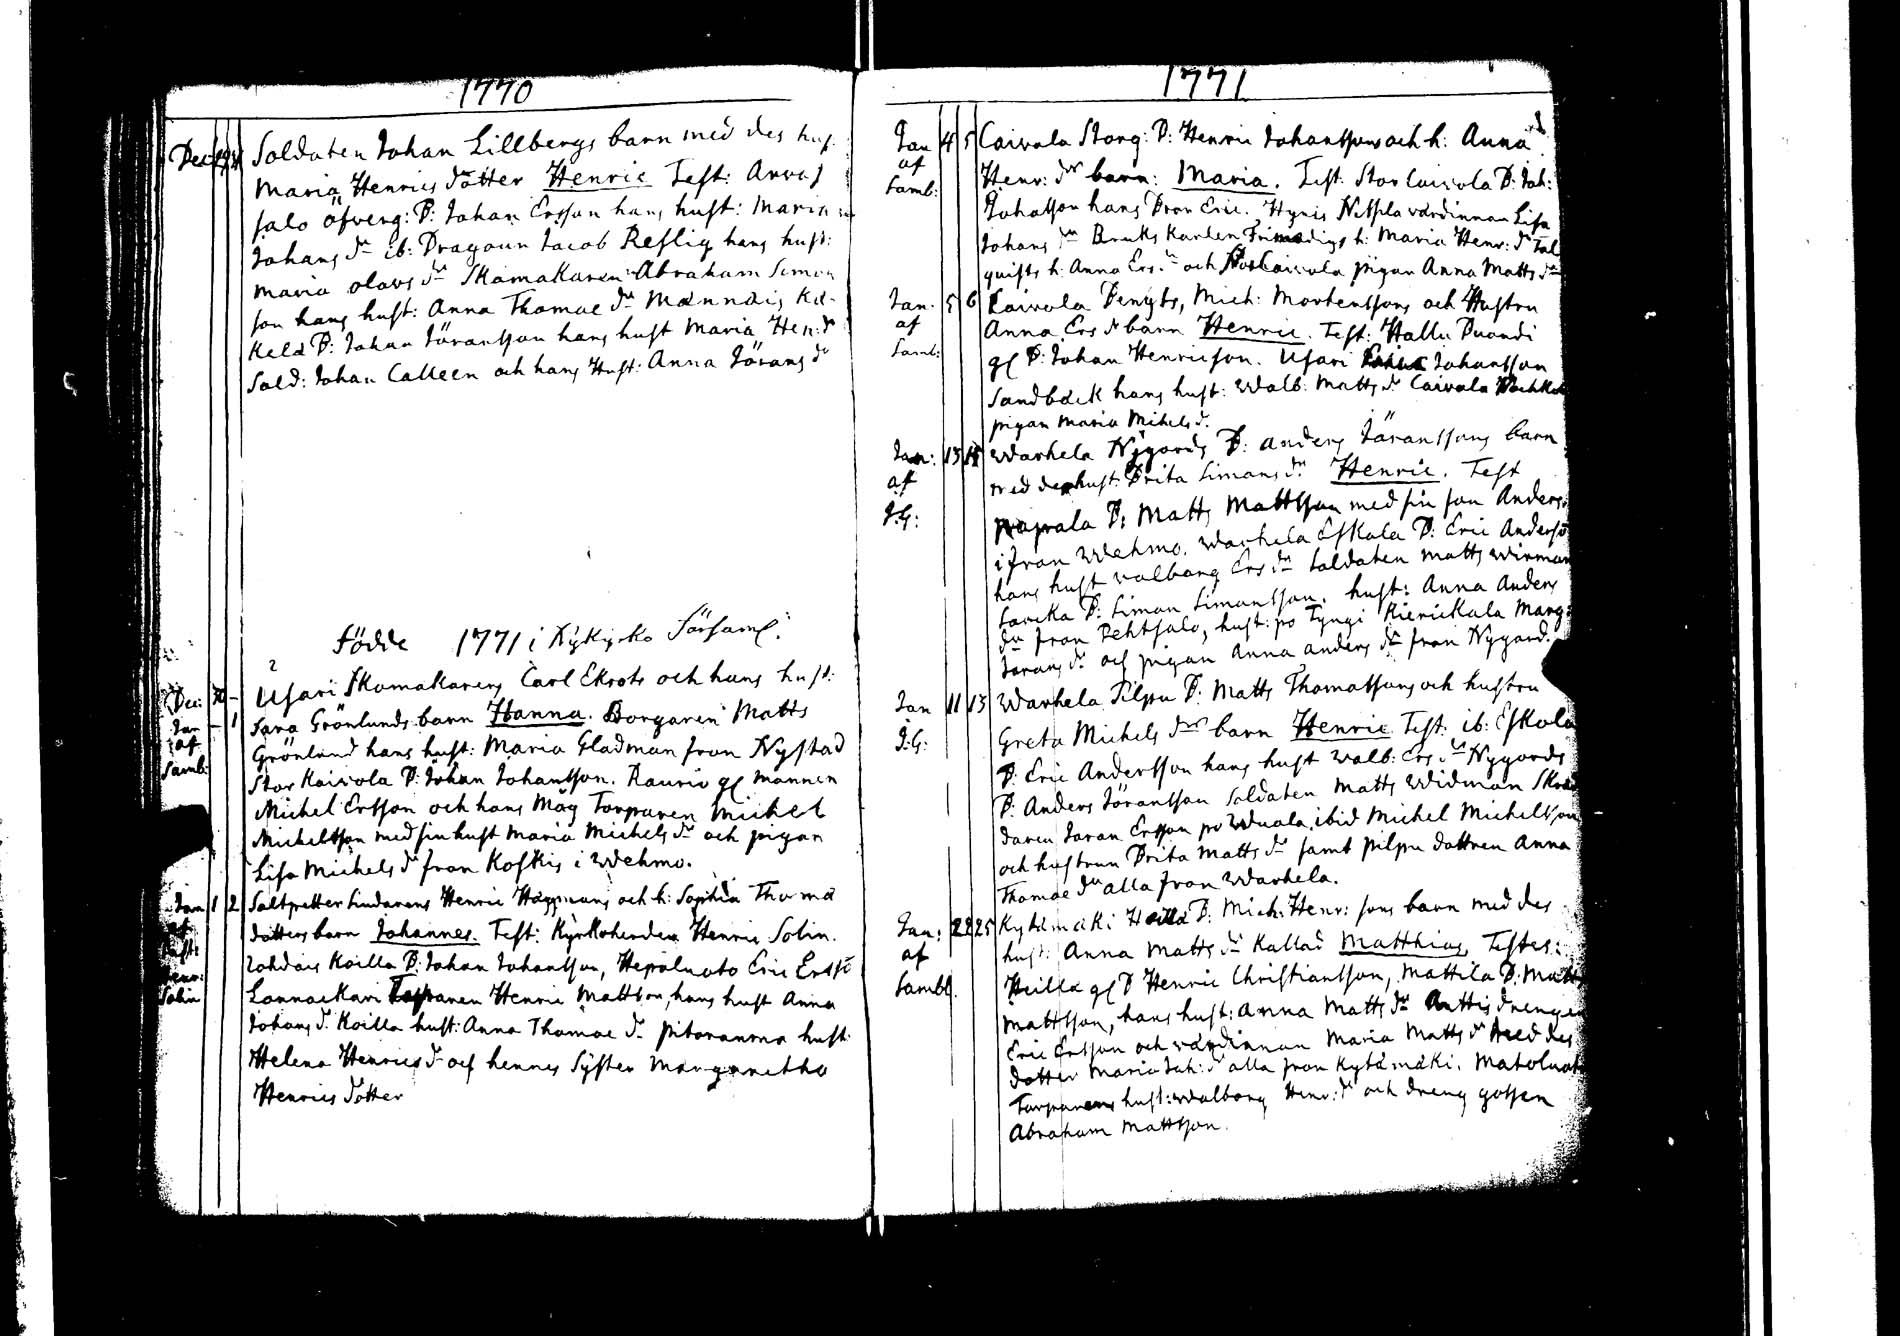 1770
Dec: Soldaten Johan Lillbergs barn med des hus.
Maria Henrics dotter Henric Test: Arvas
salo öfverg: B: Johan Ersson hans hust: Maria
Johans dr ib: Dragoun Jacob Reslig hans hust:
Maria olavs dr Skamakaren Abraham Simon
son hans hust: Anna Thomae dr Männäis Ke-
kela B: Johan Jöransson hans hust Maria Hen: dr
Sold: Johan Calleen och hans Hust: Anna Jörans dr
Födde 1771 i Nykyrko Församl:
Dec: 30 - Usari Skomakarens Carl Ekrots och hans hust:
Jan - 1 Sara Grönlunds barn Hanna. Borgaren Matts
af Grönlund hans hust: Maria Gladman fron Nystad
Samb: Stor Kaivola B: Johan Johansson. Raurio gl mannen
Michel Ersson och hans Måg Torparen Michel
Michelsson med sin hust Maria Michels dr och pigan
Lisa Michels dr fron Koskis i Wehmo.
Jan 1 2 Saltpetter siudarens Henric Häggmans och h: Sophia Thoma
af dotters barn Johannes. Test: Kyrkoherden Henric Solin.
Koilla B: Johan Johansson, Hepoluoto Eric Ersso
Henr: Solin Lannaekari Torparen Henric Mattson, hans hust Anna
Johans dr Koilla hust: Anna Thomae dr hust:
Helena Henrics dr och hennes Syster Margaretha
Henrics dotter
1771
Jan 4 5 Caivola Storg: B: Henric Johanssons och h: Anna
af Henr: dr barn: Maria. Test: Stor Caivola B: Joh:
Samb: Johasson hans Bror Eric. Hynis Nispla värdinnan Lisa
Johans dr Bruks Karlen h: Maria Henr: dr Tal
quists h: Anna Ers. dr och Stor Caivola pigan Anna Matts dr
Jan. 5 6 Caivola Bengts, Mich: Mortenssons och Hustru
af Anna Ers dr barn Henric. Test: Hallu Buandi
Samb: gl B: Johan Henricson. Usari Johansson
Sandbäck hans hust: Walb: Matts dr Caivola
pigan Maria Mikels d.
Jan: 13 15 Warhela Nygords B: Anders Jöranssons barn
af med des hust: Brita Simons dr Henric. Test
J.G: B: Matts Mattsson med sin son Anders
ifron Wehmo. Warhela Eskola B: Eric Anderso
hans hust valborg Ers dr Soldaten Matts Widman
Sorcka B: Simon Simonsson. hust: Anna Anders
dr fron Pehtsalo, hust: po Tyngi Kierickala Marg:
Jorans dr och pigan Anna Anders dr fron Nygord.
Jan 11 13 Warhela Pilpu B: Matts Thomassons och hustru
J.G: Greta Michels drs barn Henric Test: ib: Eskola
B: Eric Andersson hans hust Walb: Ers dr Nygords
B: Anders Jöransson Soldaten Matts Widman Skräd
daren Joran Ersson po Wuola, ibid Michel Michelsson
och hustrun Brita Matts dr samt pilpu dottren Anna
Thomae dr alla fron Warhela.
Jan: 22 25 Kytämäki Heilä B: Mich: Henr: sons barn med des
af hust: Anna Matts dr Kallad Matthias, Testes:
Sambl. Heillä gl B Henric Christiansson, Mattila B: Matts
Mattsson, hans hust: Anna Matts dr Anttis drengen
Eric Ersson och värdinnan Maria Matts dr med des
dotter Maria Joh: dr alla fron Kytämäki. Matoluoto
Torparens hust: Walborg Henr: dr och dreng gossen
Abraham Mattson.